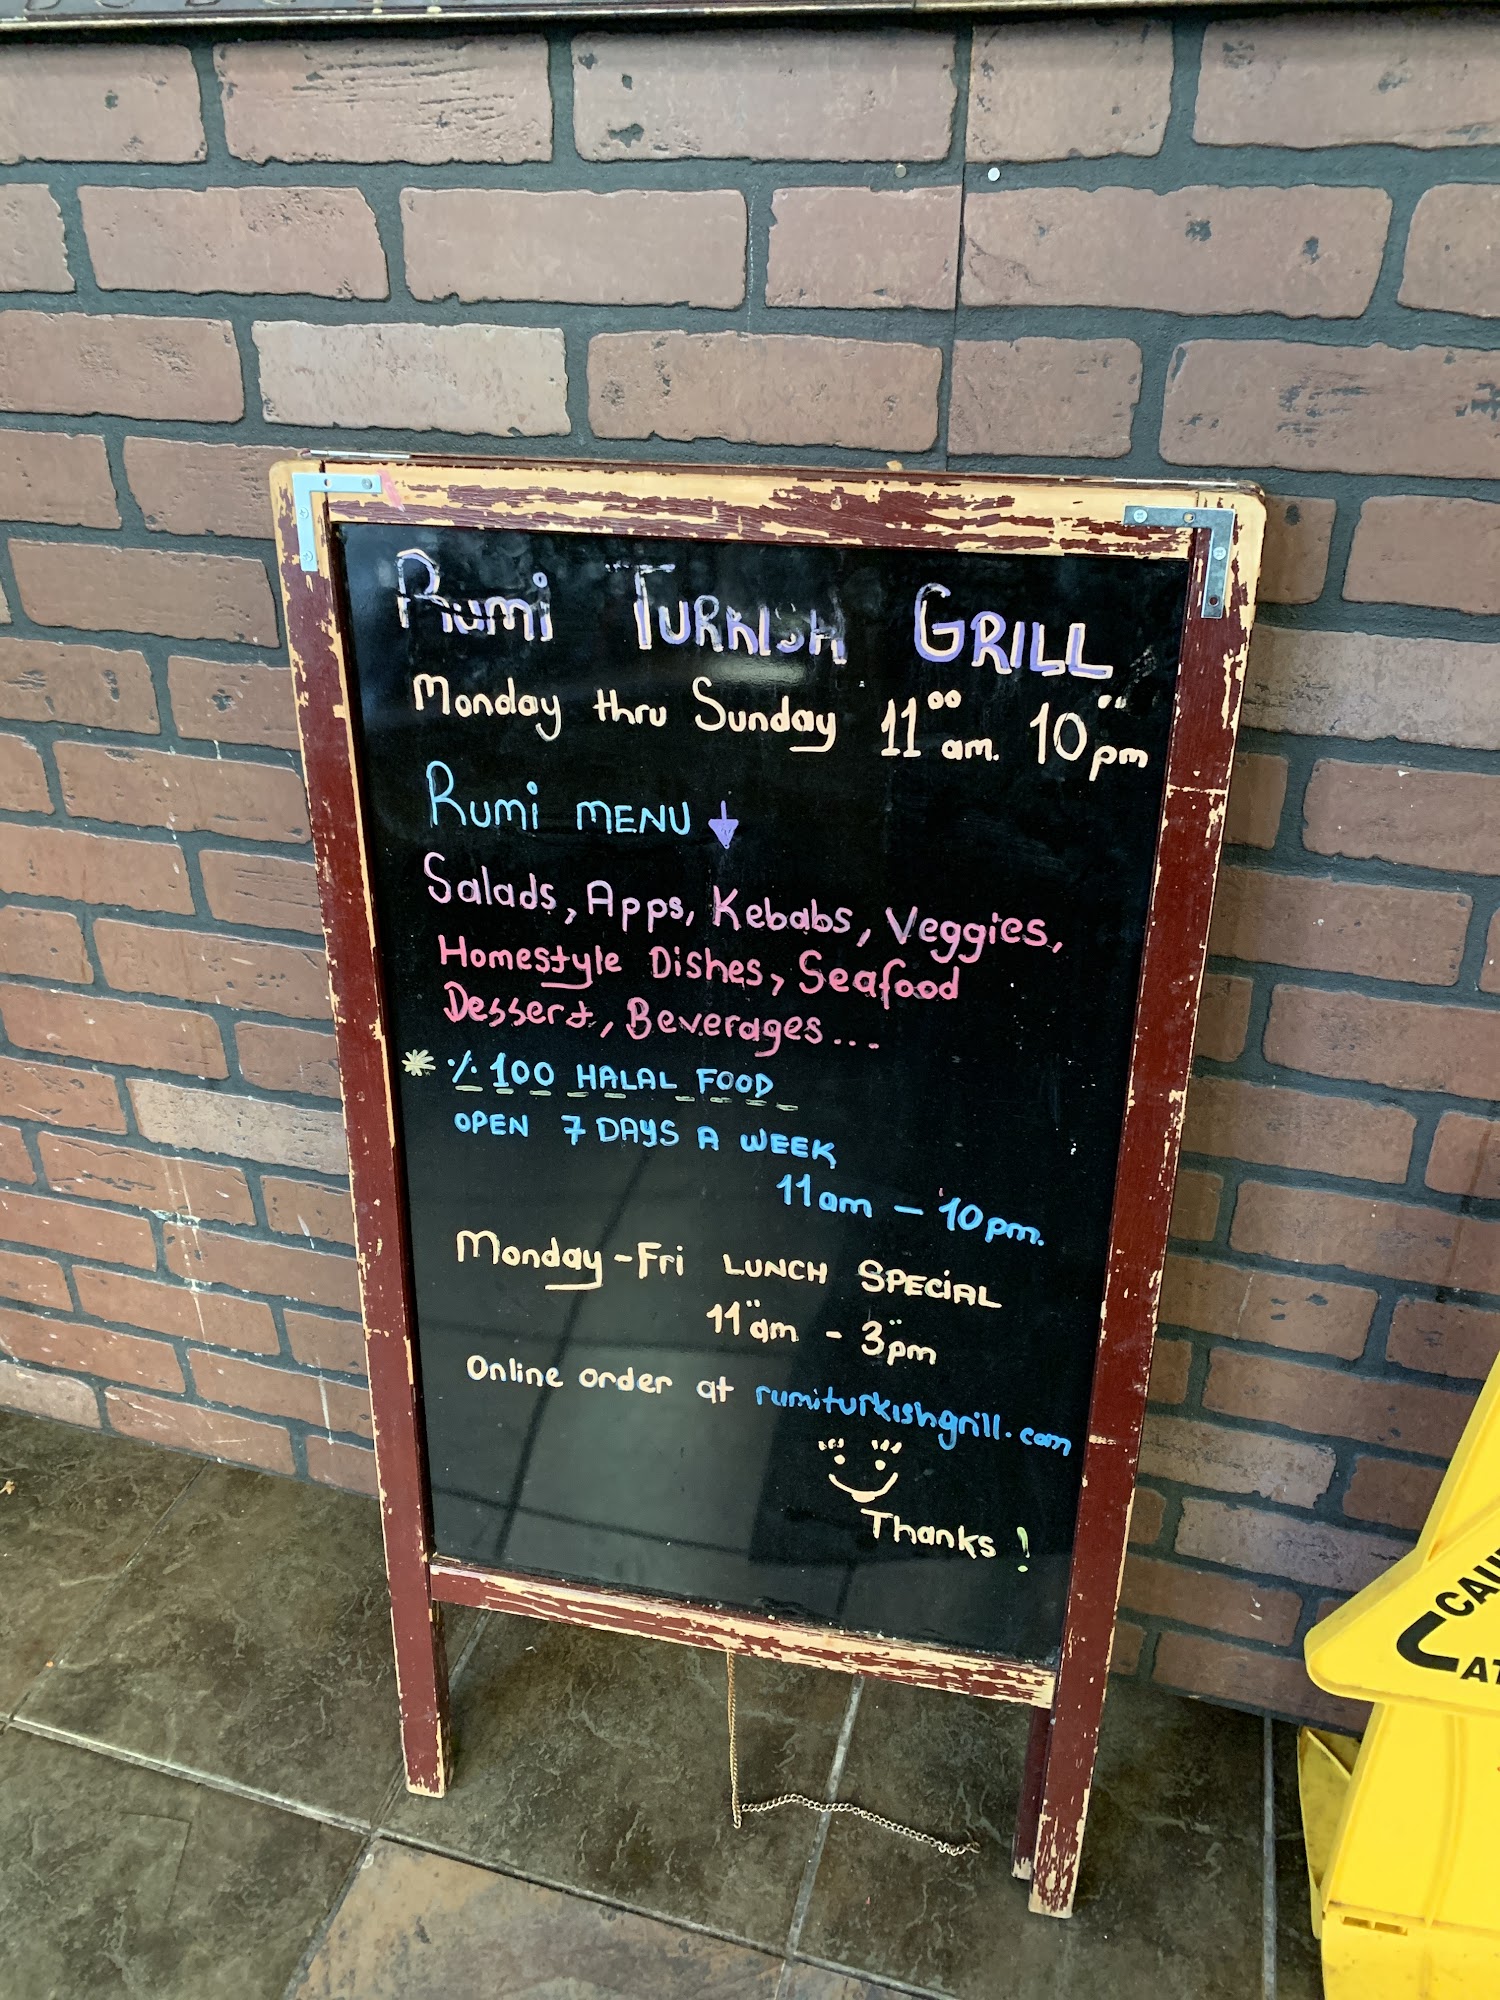 Rumi TURKISH GRILL
Monday thru Sunday 11:00 am. 10:00 pm
Rumi MENU ↓
Salads, Apps, Kebabs, Veggies,
Homestyle Dishes, Seafood
Dessert, Beverages...
* % 100 HALAL FOOD
OPEN 7 DAYS A WEEK
11am - 10pm.
Monday-Fri LUNCH SPECIAL
11am - 3pm
Online order at rumiturkishgrill.com
Thanks!